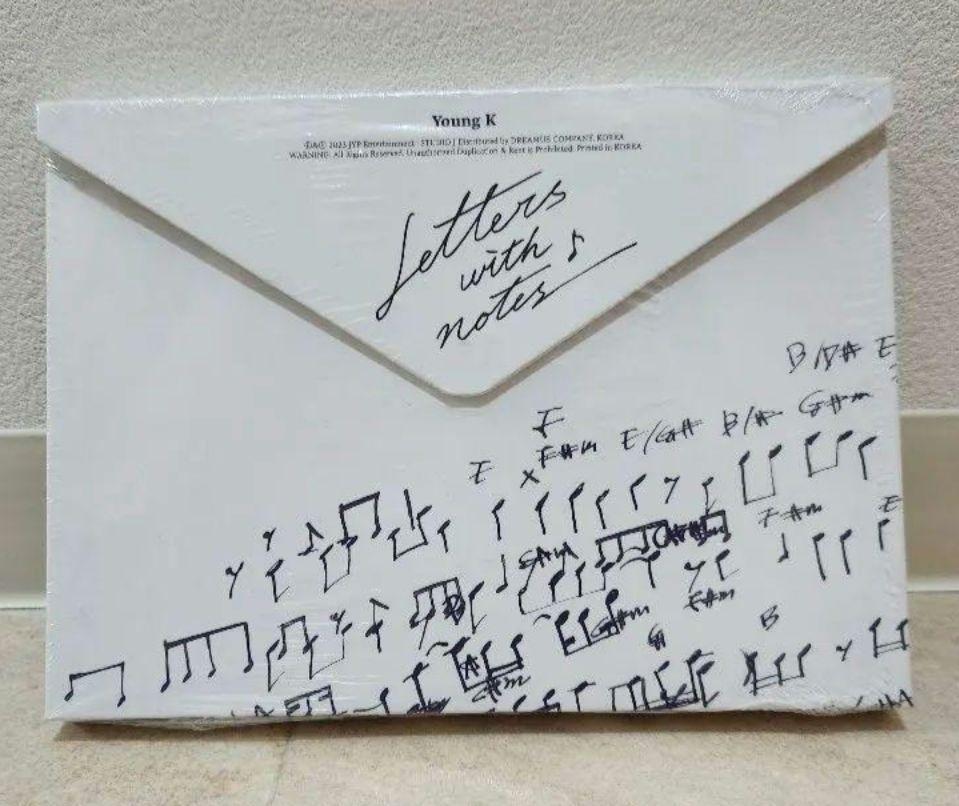 Young K
℗&© 2023 JYP Entertainment · STUDIO J Distributed by DREAMUS COMPANY. KOREA
WARNING: All Rights Reserved. Unauthorized Duplication & Rent is Prohibited. Printed in KOREA
Letters
with
notes
B/D# E
F
E F#m E/G# B/# G#m
F#m E
G#m F#m
B
A
C#m